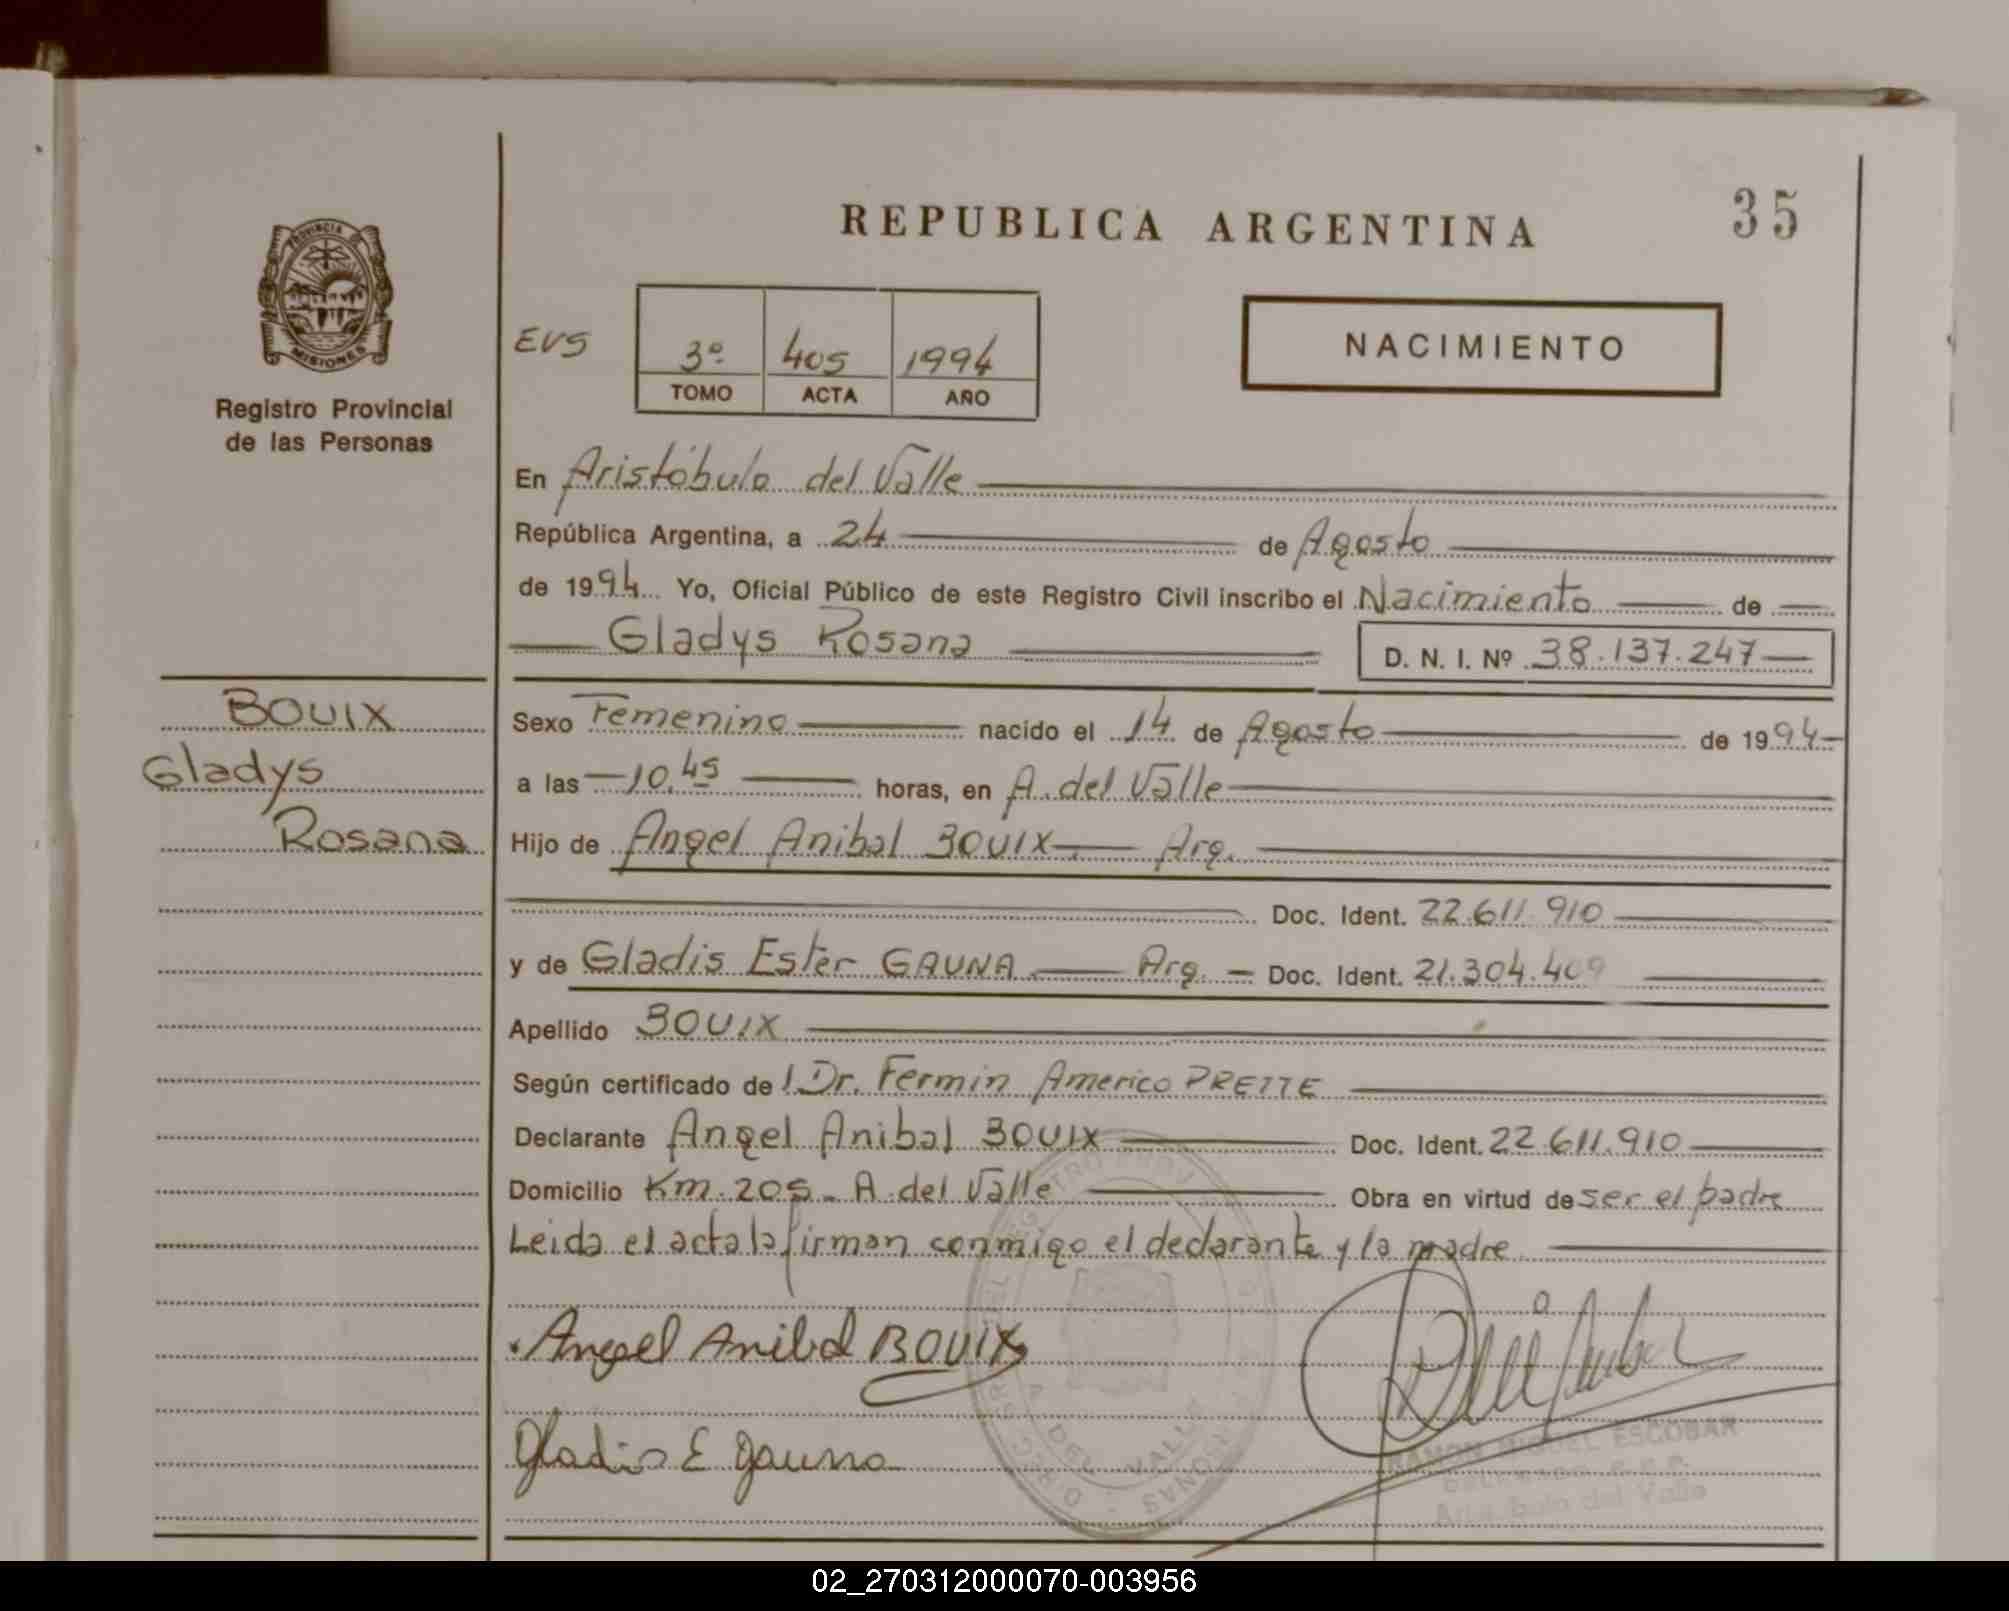 REPUBLICA ARGENTINA
35
PROVINCIA DE
MISIONES
Registro Provincial
de las Personas
EVS
3º 405 1994
TOMO ACTA AÑO
NACIMIENTO
En Aristóbulo del Valle
República Argentina, a 24 de Agosto
de 1994 Yo, Oficial Público de este Registro Civil inscribo el Nacimiento de
Gladys Rosana
D. N. I. Nº 38.137.247
BOUIX
Gladys
Rosana
Sexo Femenino nacido el 14 de Agosto de 1994
a las 10,45 horas, en A. del Valle
Hijo de Angel Anibal BOUIX Arg.
Doc. Ident. 22.611.910
y de Gladis Ester GAUNA Arg. Doc. Ident. 21.304.409
Apellido BOUIX
Según certificado de l Dr. Fermin Americo PRETTE
Declarante Angel Anibal BOUIX Doc. Ident. 22.611.910
Domicilio Km. 205 - A. del Valle Obra en virtud de ser el padre
Leida el acta la firman conmigo el declarante y la madre
Angel Anibal BOUIX
Gladis E Gauna
A. DEL VALLE
RAMON MIGUEL ESCOBAR
Aristobulo del Valle
02_270312000070-003956